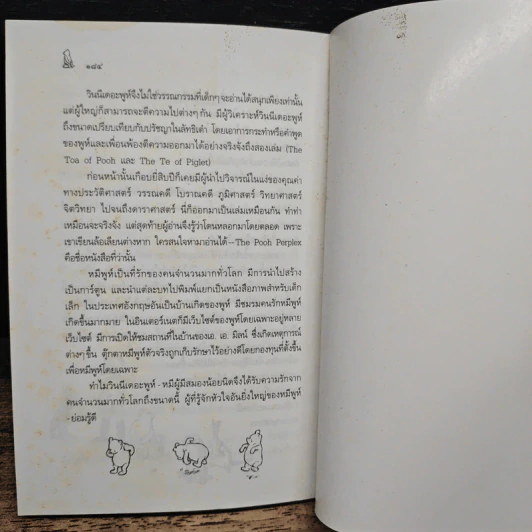 ๑๘๔
วินนีเดอะพูห์จึงไม่ใช่วรรณกรรมที่เด็กๆ จะอ่านได้สนุกเพียงเท่านั้น
แต่ผู้ใหญ่ก็สามารถจะตีความไปต่างๆ กัน มีผู้วิเคราะห์วินนีเดอะพูห์
ถึงขนาดเปรียบเทียบกับปรัชญาในลัทธิเต๋า โดยเอาการกระทำหรือคำพูด
ของพูห์และเพื่อนพ้องตีความออกมาได้อย่างจริงจังถึงสองเล่ม (The
Toa of Pooh และ The Te of Piglet)
ก่อนหน้านั้นเกือบยี่สิบปีก็เคยมีผู้นำไปวิจารณ์ในแง่ของคุณค่า
ทางประวัติศาสตร์ วรรณคดี โบราณคดี ภูมิศาสตร์ วิทยาศาสตร์
จิตวิทยา ไปจนถึงดาราศาสตร์ นี่ก็ออกมาเป็นเล่มเหมือนกัน ทำท่า
เหมือนจะจริงจัง แต่สุดท้ายผู้อ่านจึงรู้ว่าโดนหลอกมาโดยตลอด เพราะ
เขาเขียนล้อเลียนต่างหาก ใครสนใจหามาอ่านได้ -- The Pooh Perplex
คือชื่อหนังสือที่ว่านั้น
หมีพูห์เป็นที่รักของคนจำนวนมากทั่วโลก มีการนำไปสร้าง
เป็นการ์ตูน และนำแต่ละบทไปพิมพ์แยกเป็นหนังสือภาพสำหรับเด็ก
เล็ก ในประเทศอังกฤษอันเป็นบ้านเกิดของพูห์ มีชมรมคนรักหมีพูห์
เกิดขึ้นมากมาย ในอินเตอร์เนตก็มีเว็บไซต์ของพูห์โดยเฉพาะอยู่หลาย
เว็บไซต์ มีการเปิดให้ชมสถานที่ในบ้านของเอ. เอ. มิลน์ ซึ่งเกิดเหตุการณ์
ต่างๆ ขึ้น ตุ๊กตาหมีพูห์ตัวจริงถูกเก็บรักษาไว้อย่างดีโดยกองทุนที่ตั้งขึ้น
เพื่อหมีพูห์โดยเฉพาะ
ทำไมวินนีเดอะพูห์ - หมีผู้มีสมองน้อยนิดจึงได้รับความรักจาก
คนจำนวนมากทั่วโลกถึงขนาดนี้ ผู้ที่รู้จักหัวใจอันยิ่งใหญ่ของหมีพูห์
- ย่อมรู้ดี